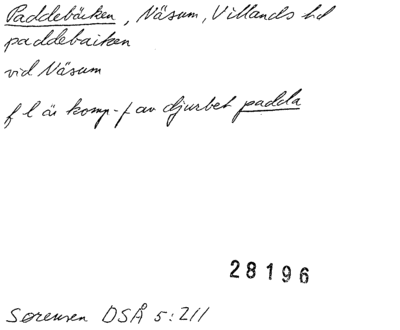 Paddebäcken, Näsum, Villands hd
paddebaiken
vid Näsum
f l är komp-f av djurbet padda
28196
Sørensen DSÅ 5:211